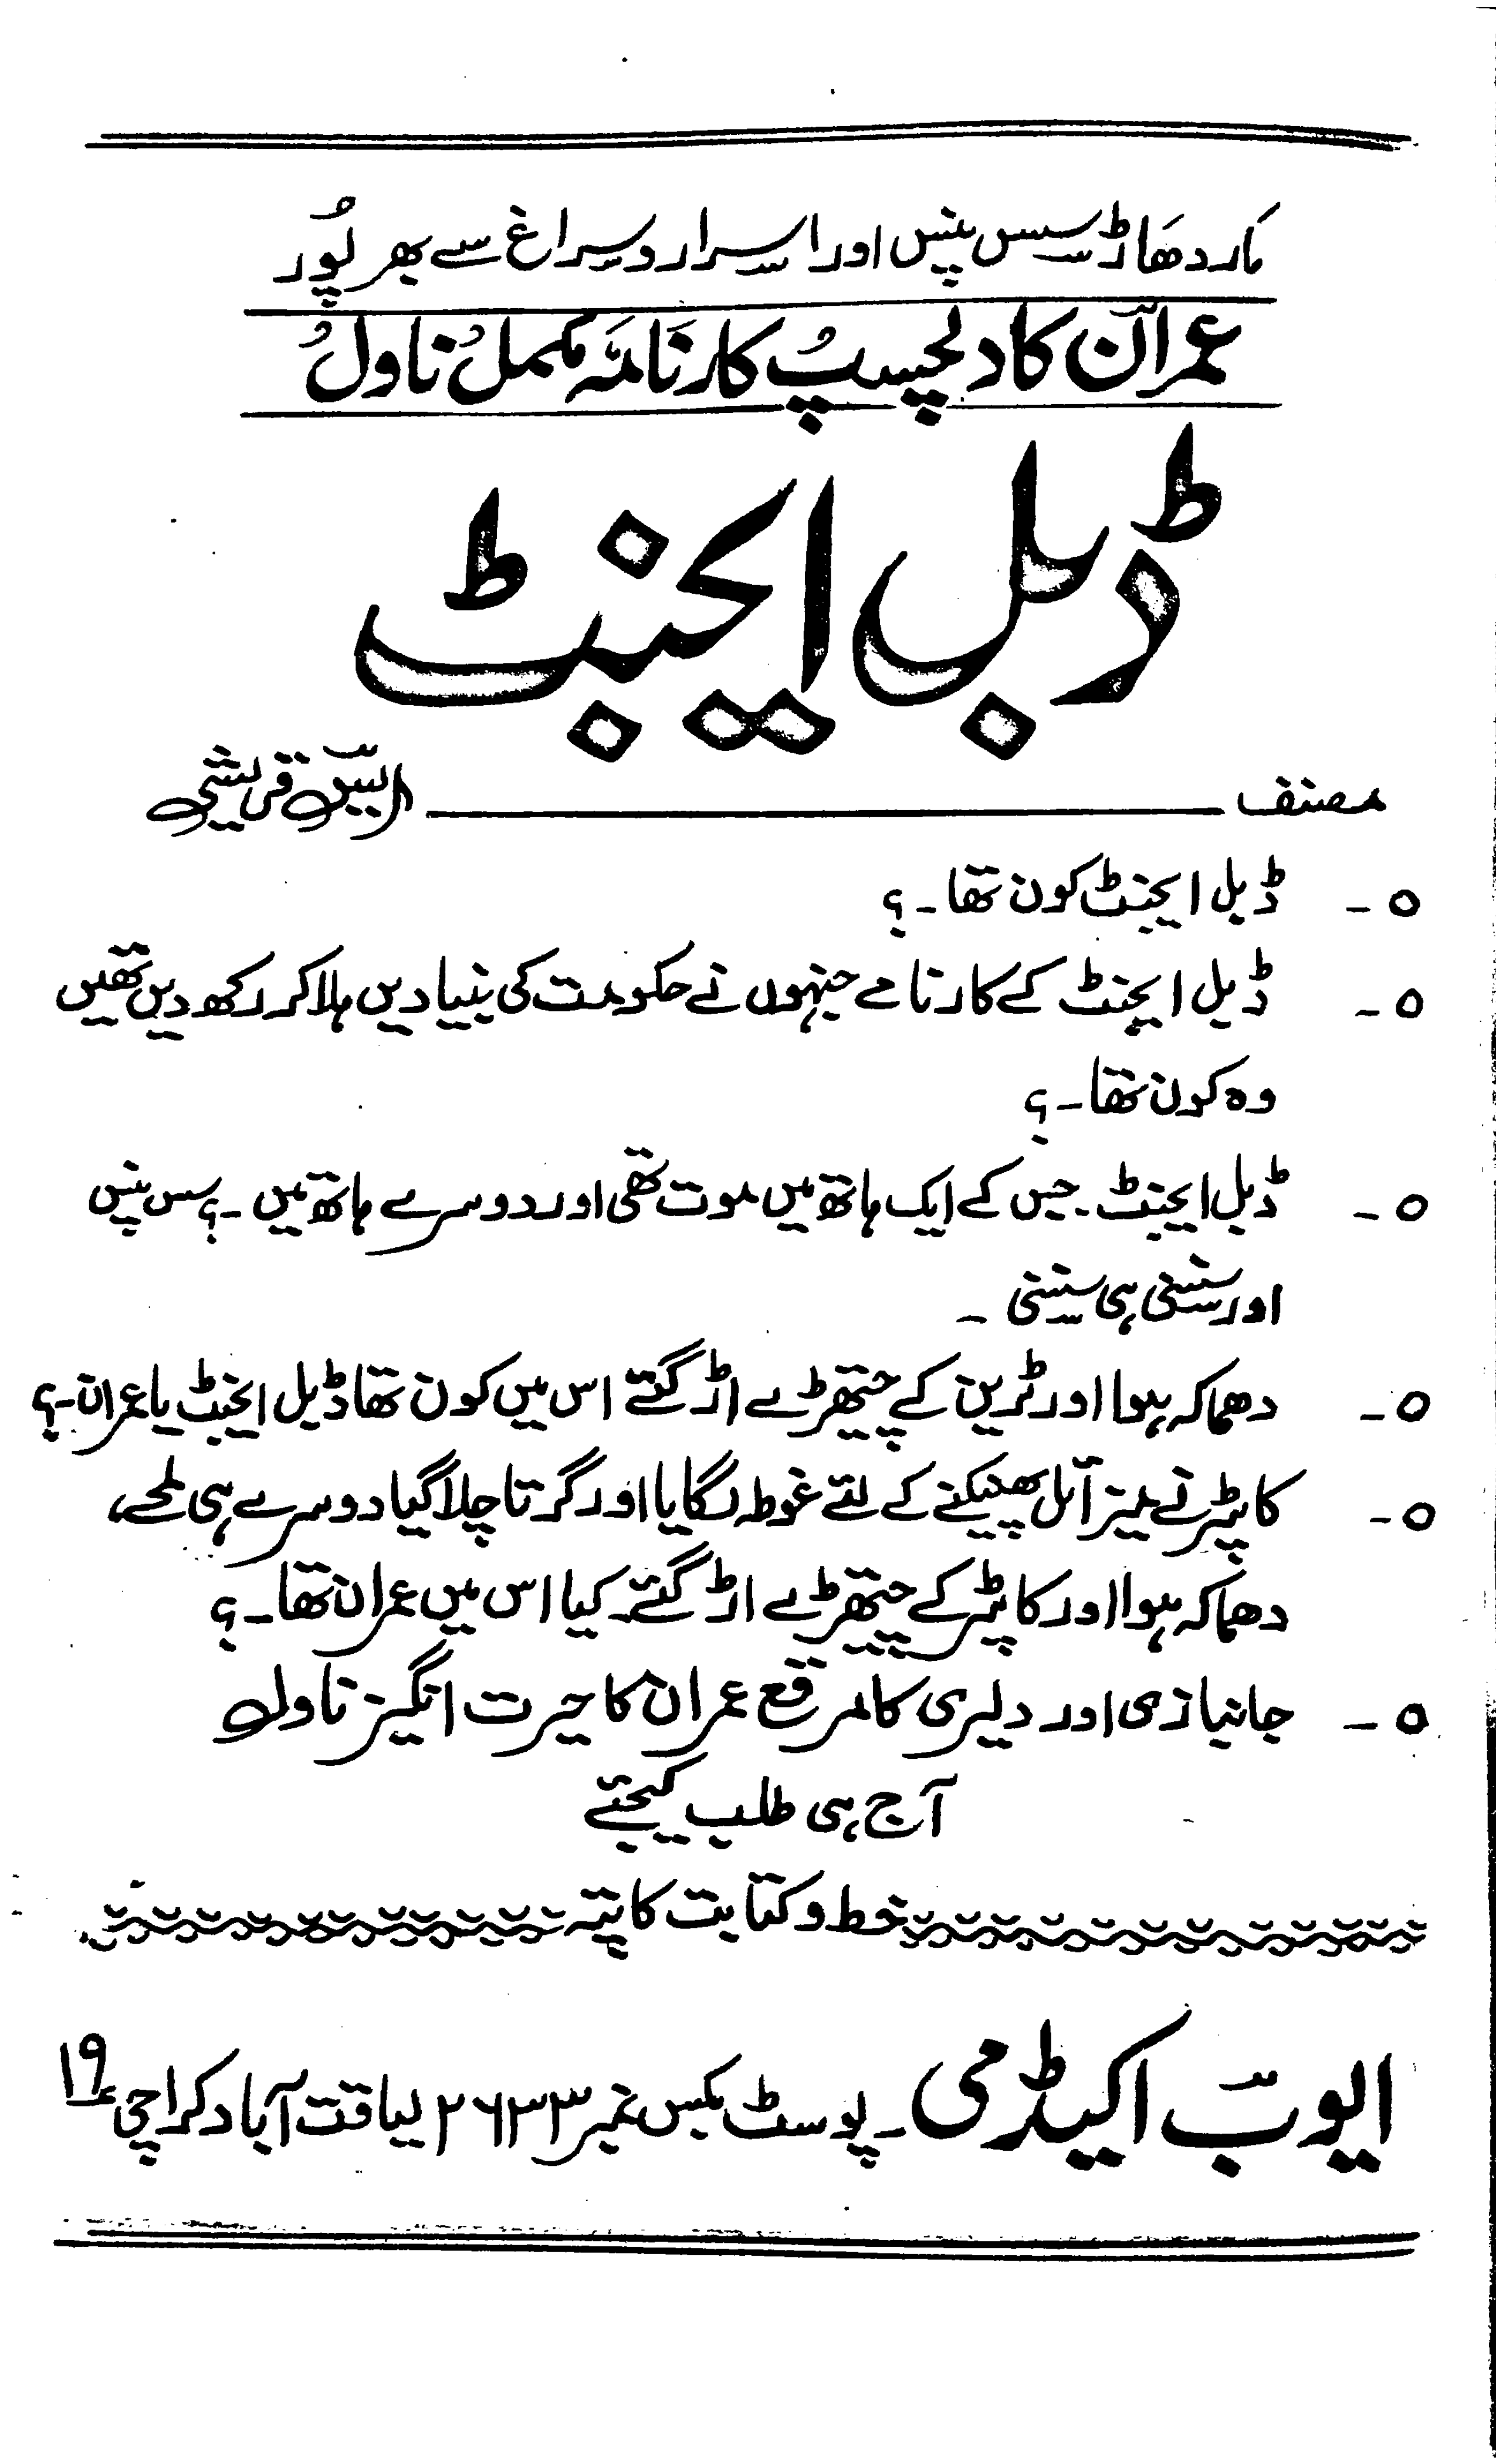 مار دھاڑ سسپنس اور اسرار و سراغ سے بھر پُور
عمران کا دلچسپ کارنامہ مکمل ناول
ڈبل ایجنٹ
مصنف ایس قریشی
۵- ڈبل ایجنٹ کون تھا۔؟
۵- ڈبل ایجنٹ کے کارنامے جنہوں نے حکومت کی بنیادیں ہلا کر رکھ دیں تھیں
وہ کون تھا۔؟
۵- ڈبل ایجنٹ۔ جس کے ایک ہاتھ میں موت تھی اور دوسرے ہاتھ میں۔؟ سس پنس
اور سنسنی ہی سنسنی۔
۵- دھماکہ ہوا اور ٹرین کے چتھڑے اڑ گئے اس میں کون تھا ڈبل ایجنٹ یا عمران۔؟
۵- کاپٹر نے میزائل پھینکنے کے لئے غوطہ لگایا اور گرتا چلا گیا دوسرے ہی لمحے،
دھماکہ ہوا اور کاپٹر کے چتھڑے اڑ گئے۔ کیا اس میں عمران تھا۔؟
۵- جانبازی اور دلیری کا مرقع عمران کا حیرت انگیز ناول
آج ہی طلب کیجئے
خط و کتابت کا پتہ
ایوب اکیڈمی۔ پوسٹ بکس نمبر ۲۶۳۳ لیاقت آباد کراچی ۱۹